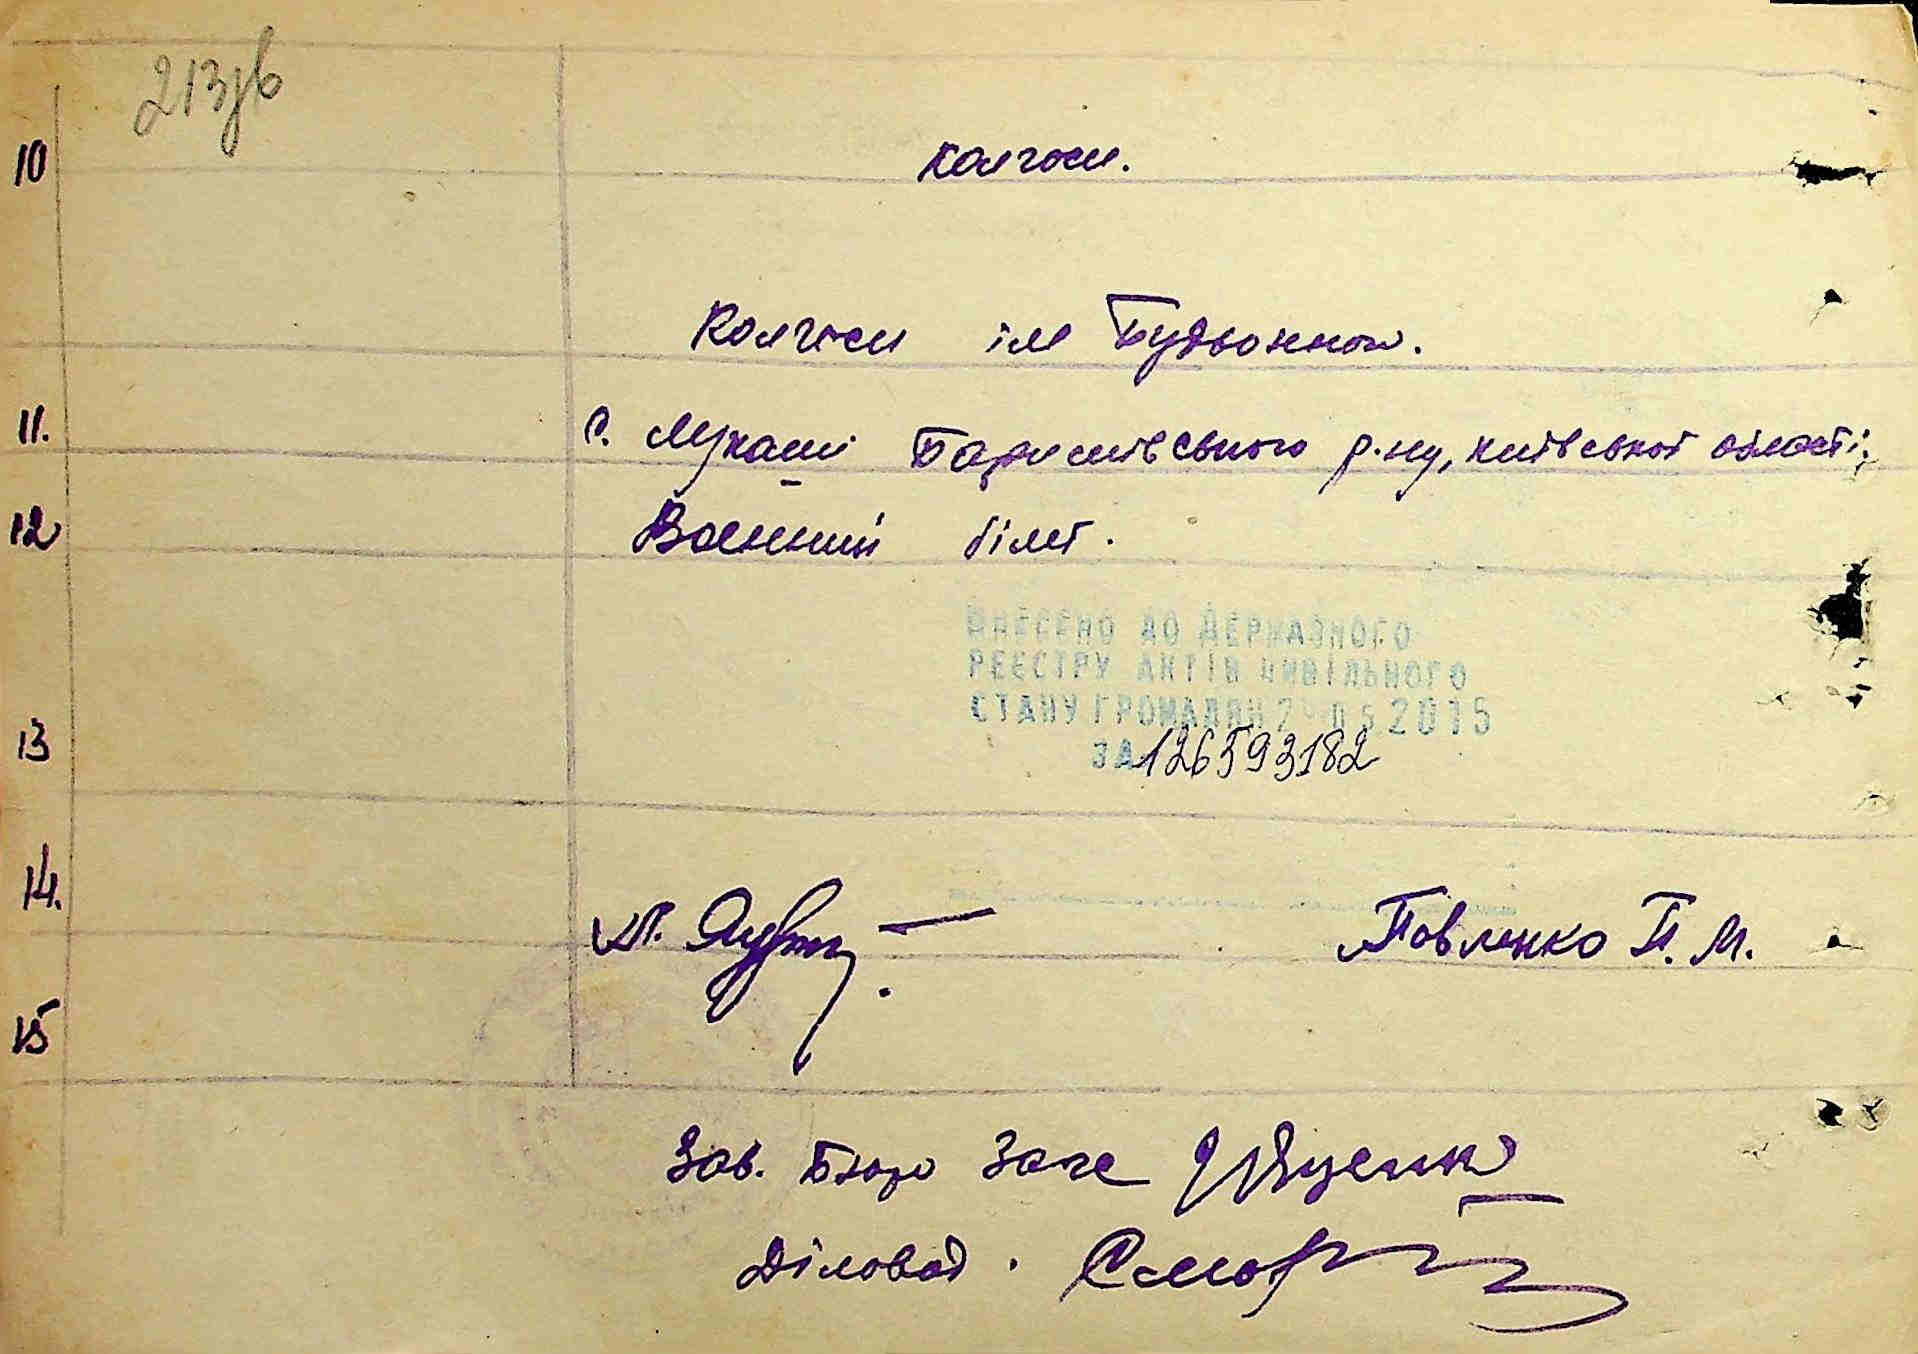 213зв
10 колгосп.
Колгосп ім Будьонного.
11. с. Лукаші Баришівського р.ну, київської області.
12 Воєнний білет.
ВНЕСЕНО ДО ДЕРЖАВНОГО
РЕЄСТРУ АКТІВ ЦИВІЛЬНОГО
СТАНУ ГРОМАДЯН 05 2015
13 ЗА 126593182
14. Павленко П. М.
15
Зав. Бюро Загс Яценко
Діловод.